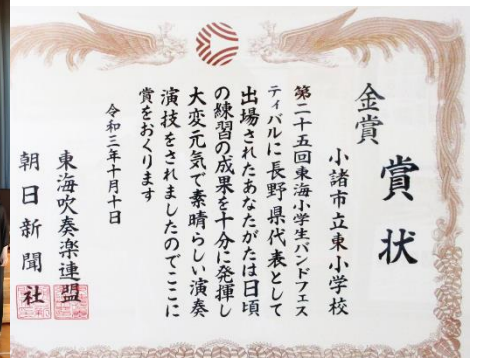 賞状
金賞
小諸市立東小学校
第二十五回東海小学生バンドフェス
ティバルに長野県代表として
出場されたあなたがたは日頃
の練習の成果を十分に発揮し
大変元気で素晴らしい演奏
演技をされましたのでここに
賞をおくります
令和三年十月十日
東海吹奏楽連盟
朝日新聞社